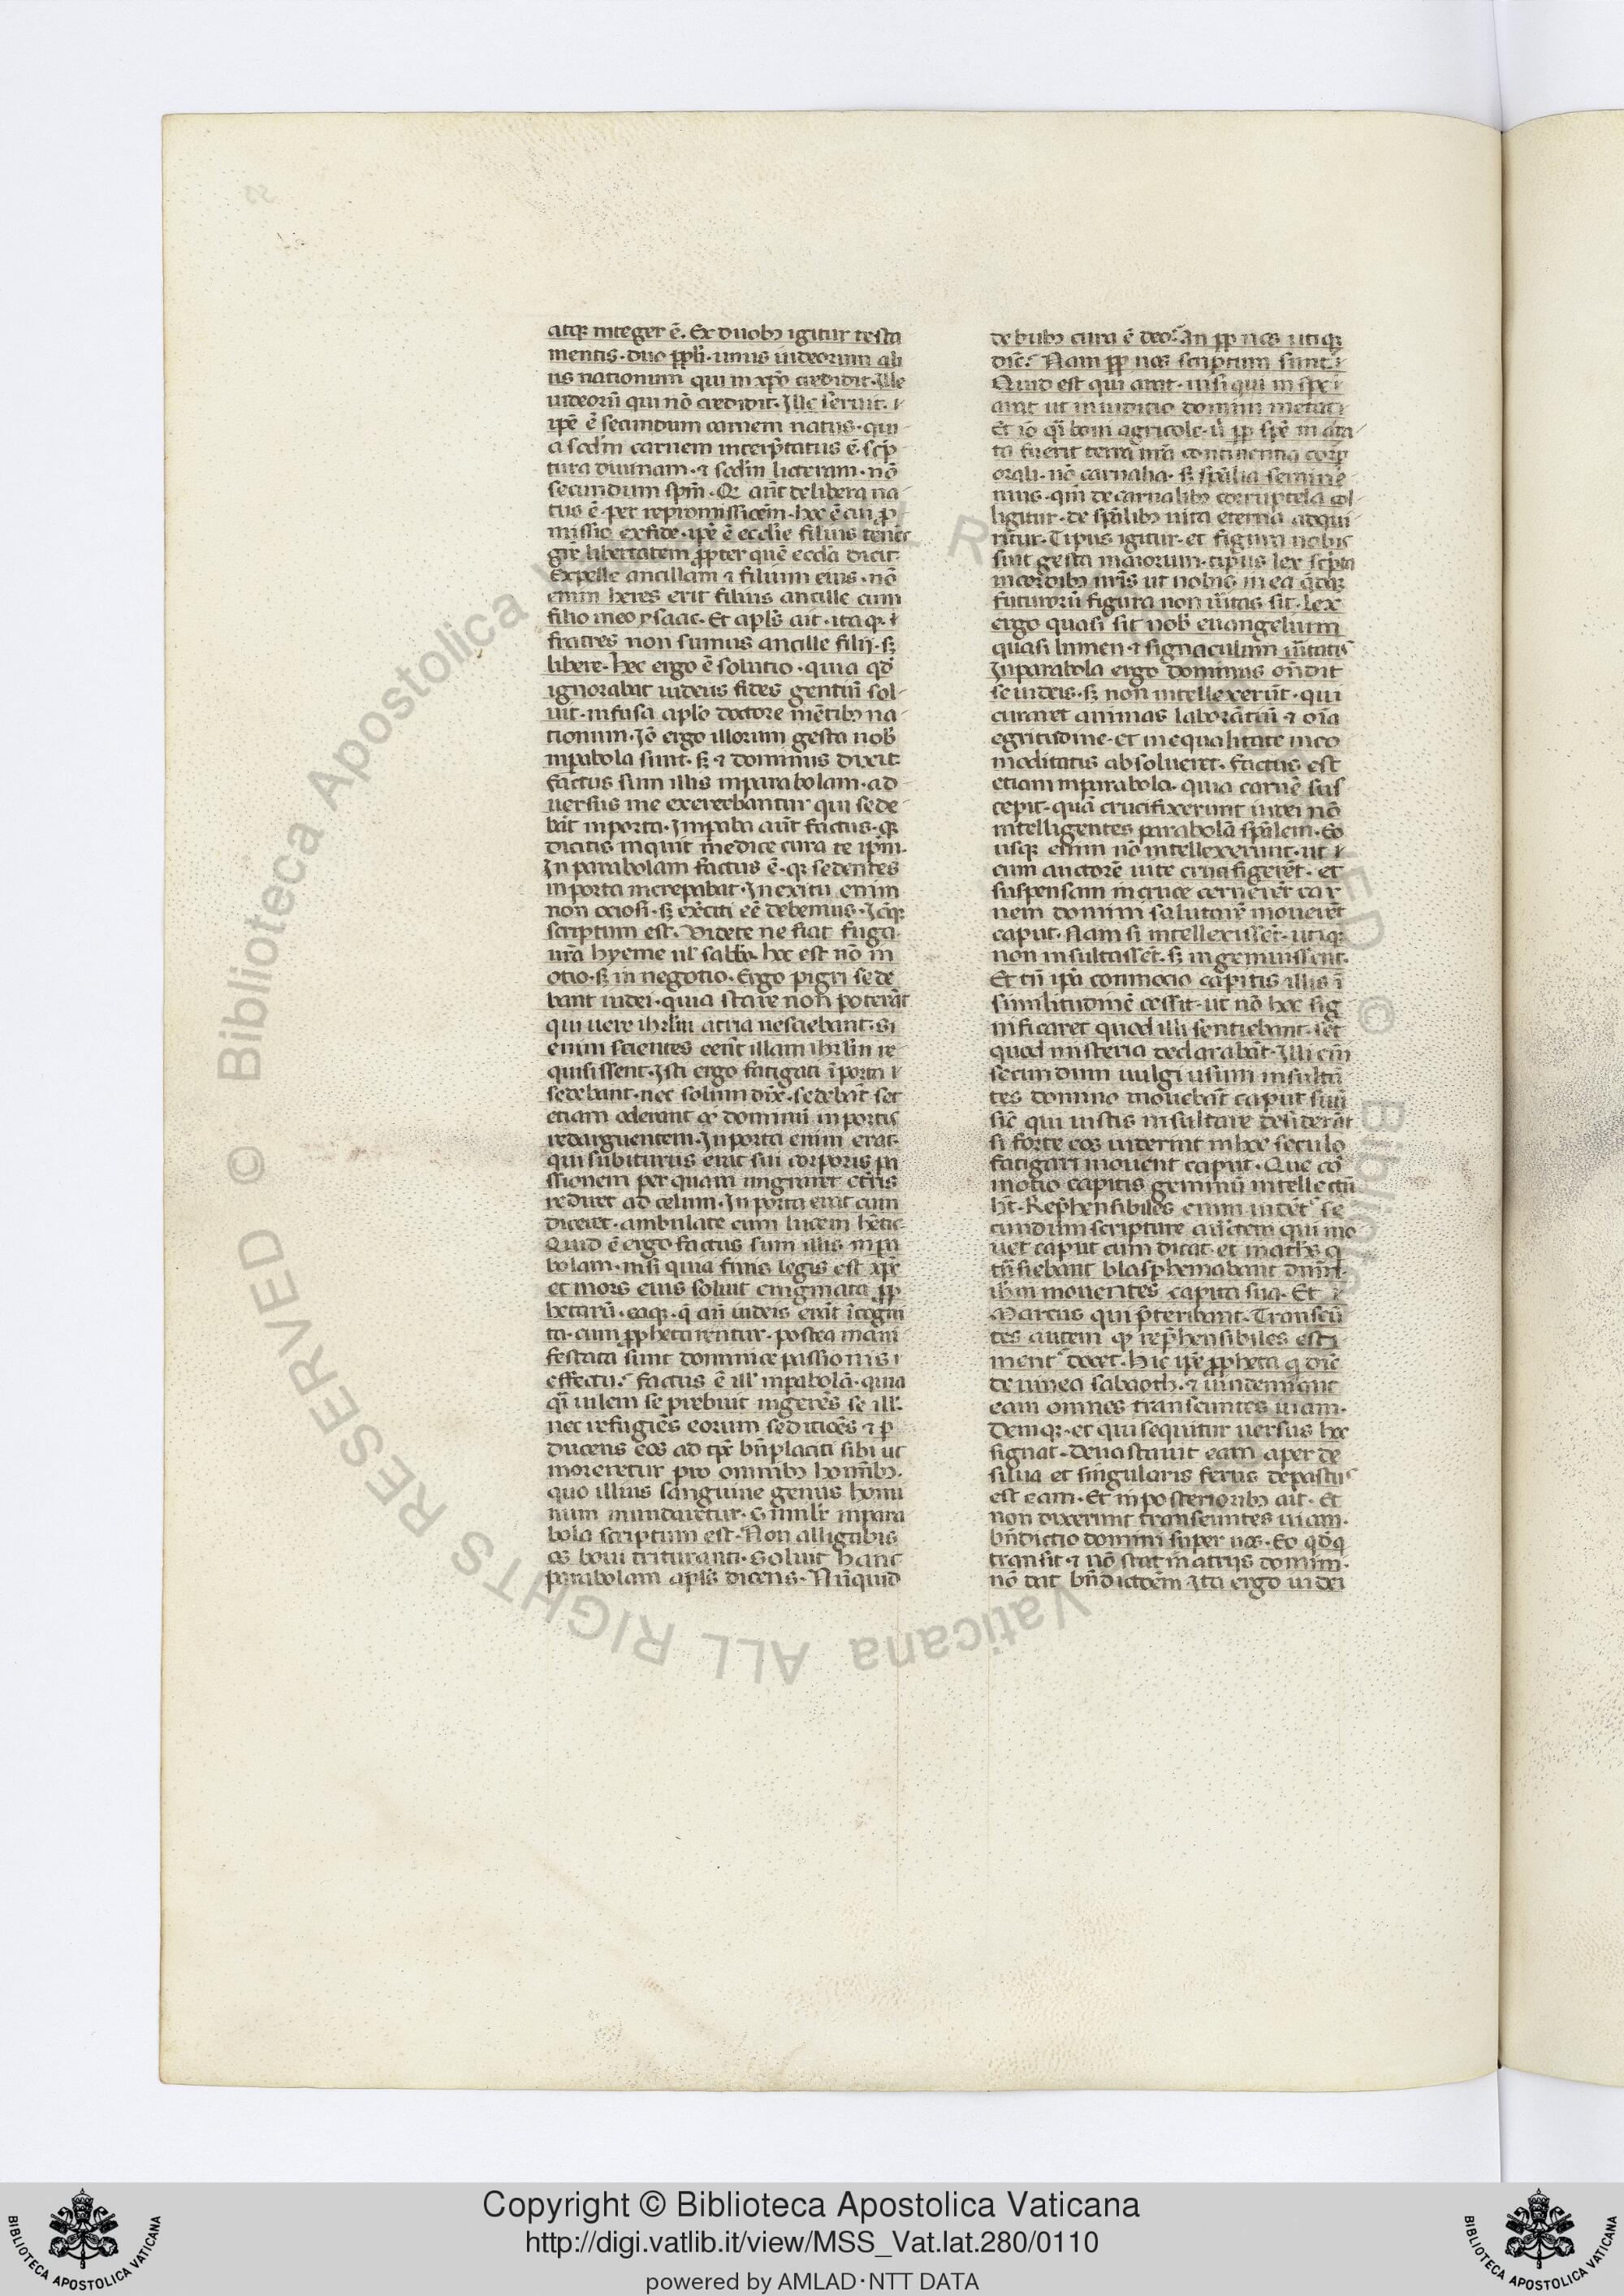 atqꝫ integer ē. Ex duobꝫ igitur testa
mentis. duo ppl̄i. unus iudeorum ali
us nationum qui in xp̄o credidit. Ille
iudeorū qui nō credidit. Ille seruit.
ip̄e ē secundum carnem natus. qui
a scd̄m carnem interp̄tatus ē. sc̄p
tura diuinam. ⁊ scd̄m licteram. nō
secundum sp̄m. Qꝫ aūt de libera na
tus ē. per repromissiōem. hoc ē cui p̄
missio ex fide. ip̄e ē ecclīe filius
libertatem ꝓpter quē ecclā dicit.
Expelle ancillam ⁊ filium eius. nō
enim heres erit filius ancille cum
filio meo ysaac. Et apl̄s ait. itaqꝫ
fratres non sumus ancille filij. sꝫ
libere. hec ergo ē solutio. quia qd̄
ignorabat iudeus fides gentiū sol
uit. infusa apl̄o doctore mētibꝫ na
tionum. Iō ergo illorum gesta nob̄
in pabola sunt. sꝫ ⁊ dominus dixit
factus sum illis in parabolam. ad
uersus me exercebantur qui sede
bāt in porta. In paba aūt factus. qꝫ
dicitis inquit medice cura te ip̄m.
In parabolam factus ē. qꝫ sedentes
in porta increpabat. In exitu enim
non ociosi. sꝫ ex̄citi eē debemus. Idqꝫ
scriptum est. Videte ne fiat fuga
ur̄a hyeme ul̄ sabb̄o. hoc est nō in
otio. sꝫ in negotio. Ergo pigri sede
bant iudei. quia stare non poterāt
qui uere ihrlm̄ atria nesciebant. Si
enim scientes eent̄ illam ihrlm̄ re
quisissent. Isti ergo fatigati ī porta
sedebant. nec solum dix̄. sedebāt set
etiam oderant qꝫ dominū in portis
redarguentem. In porta enim erat.
qui subiturus erat sui corporis pa
ssionem per quam migraret
rediret ad celum. In porta erat cum
diceret. ambulate cum lucem hētis.
Quid ē ergo factus sum illis in pa
bolam. nisi quia finis legis est xp̄s
et mors eius soluit enigmata ꝓp
hetarū. eaqꝫ. q̄ an̄ iudeis erāt īcogni
ta. cum ꝓphetarentur. postea mani
festata sunt dominice passionis
effectu. factus ē ill̄ in pabolā. quia
q̄i uilem se prebuit ingerēs se ill̄.
nec refugiēs eorum seditiōes ⁊ p̄
ducens eos ad tp̄s bn̄placiti sibi ut
moreretur pro omnibꝫ homībꝫ.
quo illius sanguine genus homi
num mundaretur. Simil̄r in para
bola scriptum est. Non alligabis
os boui trituranti. Soluit hanc
parabolam apl̄s dicens. Nūquid
de bubꝫ cura ē deo. An ꝓp nos utiqꝫ
dic̄. Nam ꝓp nos scriptum sunt.
Quid est qui arat. nisi qui in spe
arat ut in iudicio domini metat.
Et iō q̄i boni agricole. ꝓp spē
ta fuerit terra nr̄a continentia corp
orali. nō carnalia. sꝫ sp̄alia semine
mus. qm̄ de carnalibꝫ corruptela col
ligitur. de sp̄alibꝫ uita eterna adqui
ritur. Tipus igitur et figura nobis
sūt gesta maiorum. tipus lex sc̄pta
in cordibꝫ nr̄is ut nobis in ea
futurorū figura non ūitas sit. lex
ergo quasi sit nob̄ euangelium
quasi lumen ⁊ signaculum ūitatis
In parabola ergo dominus on̄dit
se iudeis. sꝫ non intellexerūt. qui
curaret animas laborātiū ⁊ oīa
egritudine. et inequalitate inco
moditatis absolueret. factus est
etiam in parabola. quia carnē sus
cepit. quā crucifixerunt iudei nō
intelligentes parabolā sp̄alem. Eo
usqꝫ enim nō intellexerunt. ut
cum auctorē uite crucifigerēt. et
suspensam in cruce cernerēt car
nem domini salutarē mouerēt
caput. Nam si intellexissēt. utiqꝫ
non insultassēt. sꝫ ingemuissent.
Et tn̄ ip̄a conmotio capitis illis ī
similitudinē cessit. ut nō hoc sig
nificaret quod illi sentiebant. set
quod misteria declarabāt. Illi ēm
secundum uulgi usum insultā
tes domino mouebāt caput suū
sic̄ qui iustis insultare desiderāt
si forte eos uiderint in hoc seculo
fatigari mouent caput. Que cō
motio capitis geminū intellectū
ht̄. Rep̄hensibiles enim uidēt se
cundum scripture auc̄tem qui mo
uet caput cum dicat et math̄s
tn̄siebant blasphemabant dn̄m
ih̄m mouentes capita sua. Et
Marcus qui p̄teribant. Transeū
tes autem qꝫ rep̄hensibiles esti
ment docet. hic ip̄e ꝓpheta q̄ dic̄
de uinea sabaoth. ⁊ uindemiant
eam omnes transeuntes uiam.
Demqꝫ. et qui sequitur uersus hoc
signat. deuastauit eam aper de
silua et singularis ferus depastus
est eam. Et in posterioribꝫ ait. Et
non dixerunt transeuntes uiam.
bn̄dictio domini super uos. Eo qd̄
transit ⁊ nō stat in atriis domini.
nō dat bn̄dictōem Ita ergo iudei
Biblioteca Apostolica Vaticana
ALL RIGHTS RESERVED
©
Copyright © Biblioteca Apostolica Vaticana
http://digi.vatlib.it/view/MSS_Vat.lat.280/0110
powered by AMLAD·NTT DATA
BIBLIOTECA APOSTOLICA VATICANA
BIBLIOTECA APOSTOLICA VATICANA